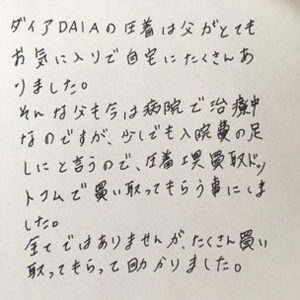 ダイアDAIAの圧着は父がとても
お気に入りで自宅にたくさんあ
りました。
そんな父も今は病院で治療中
なのですが、少しでも入院費の足
しにと言うので、圧着工具買取ドッ
トコムで買い取ってもらう事にしま
した。
全てではありませんが、たくさん買い
取ってもらって助かりました。